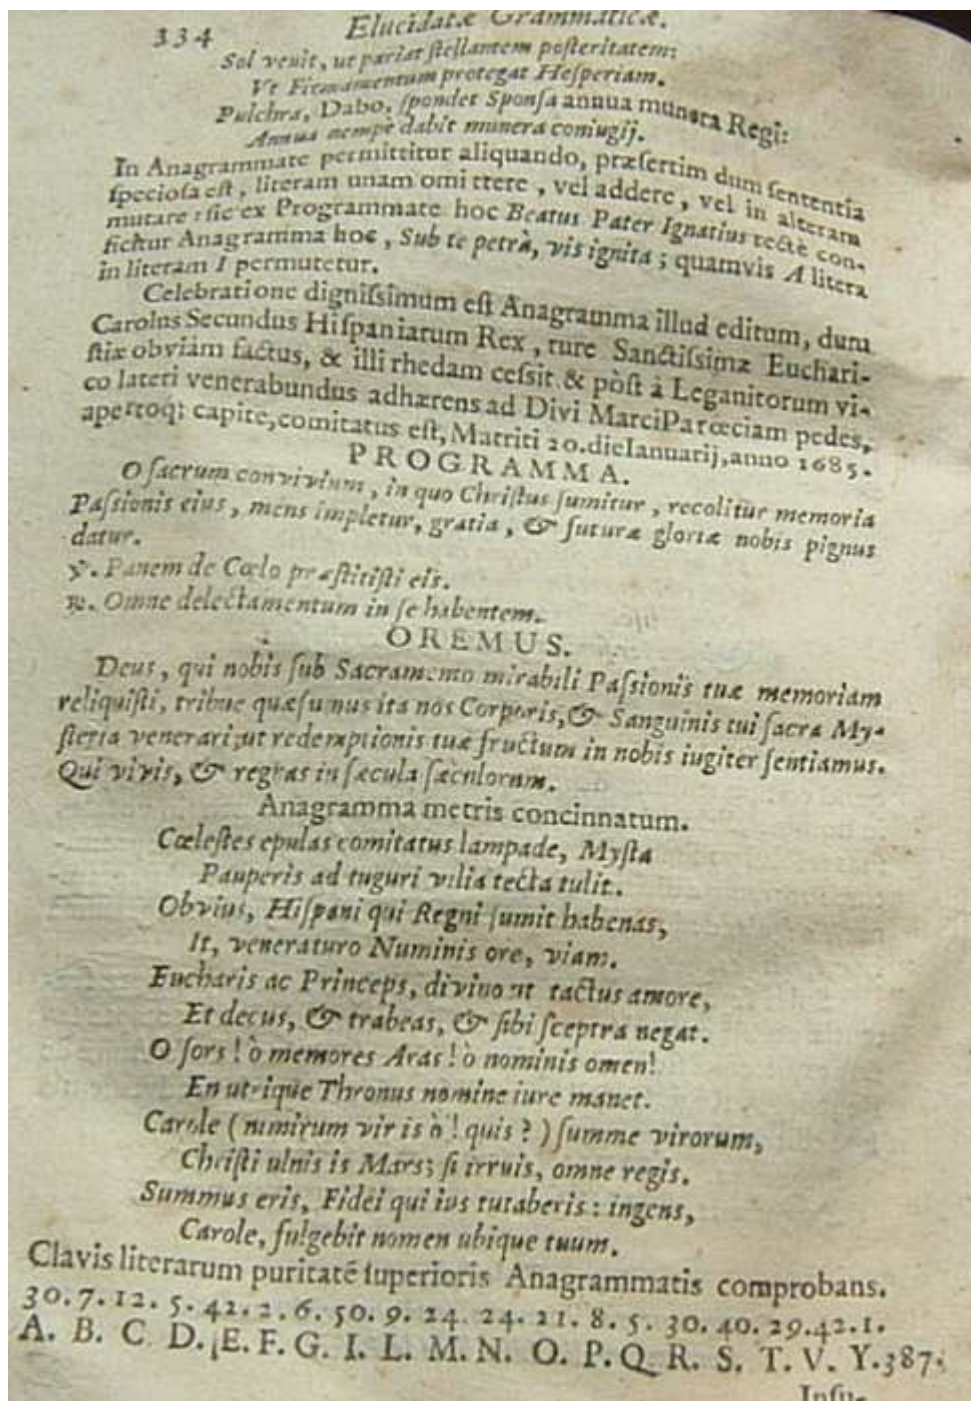 334 Elucidatæ Grammaticæ.
Sol venit, ut pariat ſtellantem poſteritatem:
Vt Firmamentum protegat Heſperiam.
Pulchra, Dabo, ſpondet Sponſa annua munera Regi:
Annua nempè dabit munera coniugij.
In Anagrammate permittitur aliquando, præſertim dum ſententia
ſpecioſa eſt, literam unam omittere, vel addere, vel in alteram
mutare: ſic ex Programmate hoc Beatus Pater Ignatius rectè con-
ficitur Anagramma hoc, Sub te petrà, vis ignita; quamvis A litera
in literam I permutetur.
Celebratione digniſsimum eſt Anagramma illud editum, dum
Carolus Secundus Hiſpaniarum Rex, rure Sanctiſsimæ Euchari-
ſtiæ obviàm factus, & illi rhedam ceſsit & pòſt à Leganitorum vi-
co lateri venerabundus adhærens ad Divi Marci Parœciam pedes,
apertoq; capite, comitatus eſt, Matriti 20. die Ianuarij, anno 1685.
PROGRAMMA.
O ſacrum convivium, in quo Chriſtus ſumitur, recolitur memoria
Paſsionis eius, mens impletur, gratia, & futuræ gloriæ nobis pignus
datur.
℣. Panem de Cœlo præſtitiſti eis.
℟. Omne delectamentum in ſe habentem.
OREMUS.
Deus, qui nobis ſub Sacramento mirabili Paſsionis tuæ memoriam
reliquiſti, tribue quæſumus ita nos Corporis, & Sanguinis tui ſacra My-
ſteria venerari; ut redemptionis tuæ fructum in nobis iugiter ſentiamus.
Qui vivis, & regnas in ſæcula ſæculorum.
Anagramma metris concinnatum.
Cœleſtes epulas comitatus lampade, Myſta
Pauperis ad tuguri vilia tecta tulit.
Obvius, Hiſpani qui Regni ſumit habenas,
It, veneraturo Numinis ore, viam.
Eucharis ac Princeps, divino ut tactus amore,
Et decus, & trabeas, & ſibi ſceptra negat.
O ſors! ò memores Aras! ò nominis omen!
En utrique Thronus nomine iure manet.
Carole (nimirum vir is ò! quis?) ſumme virorum,
Chriſti ulnis is Mars; ſi irruis, omne regis.
Summus eris, Fidei qui ius tutaberis: ingens,
Carole, fulgebit nomen ubique tuum.
Clavis literarum puritatē ſuperioris Anagrammatis comprobans.
30. 7. 12. 5. 42. 2. 6. 50. 9. 24. 24. 21. 8. 5. 30. 40. 29. 42. 1.
A. B. C D. E. F. G. I. L. M. N. O. P. Q R. S. T. V. Y. 387.
Inſu-